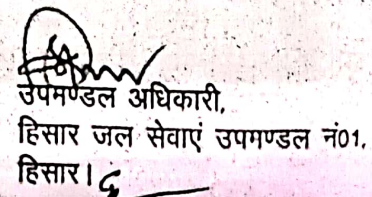 उपमण्डल अधिकारी,
हिसार जल सेवाएं उपमण्डल नं01,
हिसार।